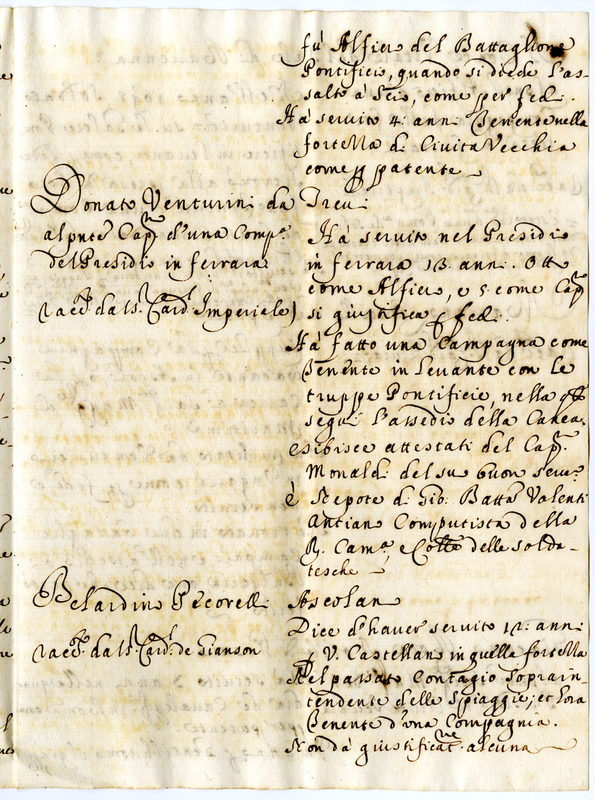 fù Alfiero del Battaglione
Pontificio, quando si diede l'as-
salto à Scio, come per fed.
Hà servito 4. anni Tenente nella
fortezza di Civita Vecchia
come p patente
Donato Venturini da Trevi
al pnte Cap.n d'una Comp.a
del Presidio in ferrara
racc.to dal S.r Card.l Imperiale)
Hà servito nel Presidio
in ferrara 13. anni. Otto
come Alfiero, e 5 come Cap.n
si giustifica p fedi.
Hà fatto una Campagna come
Tenente in Levante con le
truppe Pontificie, nella
seguì l'assedio della Canea,
esibisce attestati del Cap.n
Monaldi del suo buon serv.o
è Nepote di Gio. Batta Valenti
Antiano Computista della
R. Cam.a e delle solda-
tesche
Belardino Pecorelli
racc.to dal S.r Card.l de Gianson
Ascolano
Dice d'haver servito 12. anni
p V. Castellano in quella fortezza
Nel passato Contagio soprain-
tendente delle Spiaggie, et hora
Tenente d'una Compagnia.
Non dà giustificat.ne alcuna